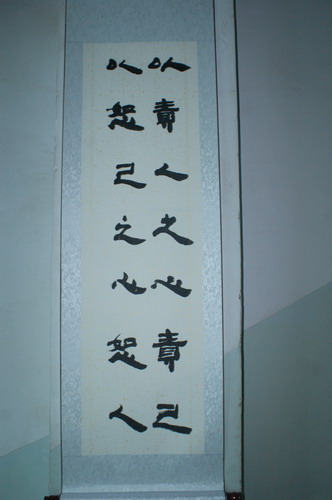 以责人之心责己
以恕己之心恕人